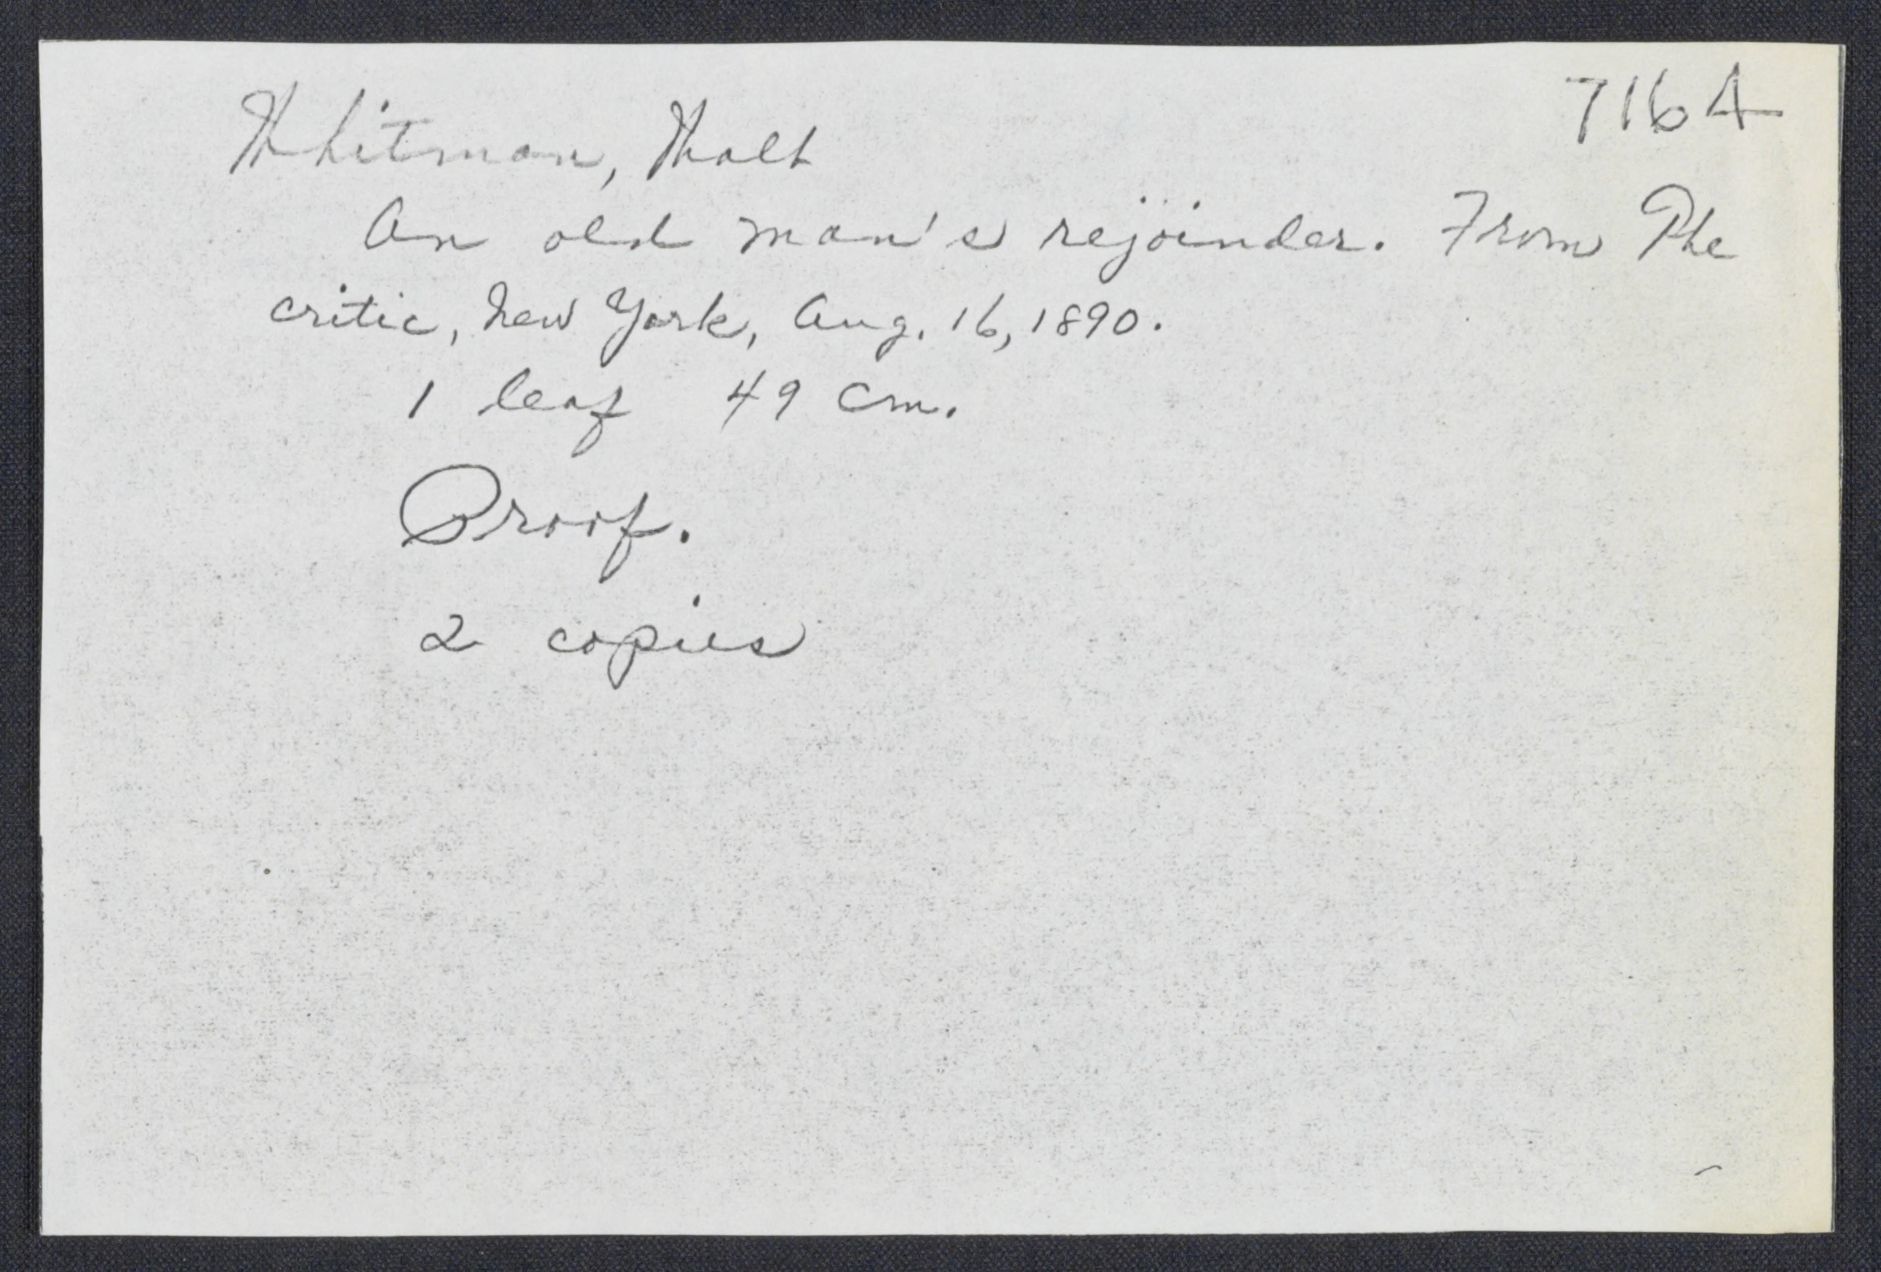 716A
Whitman, Walt
An old man's rejoinder. From The
critic, New York, Aug. 16, 1890.
1 leaf 49 cm.
Proof.
2 copies